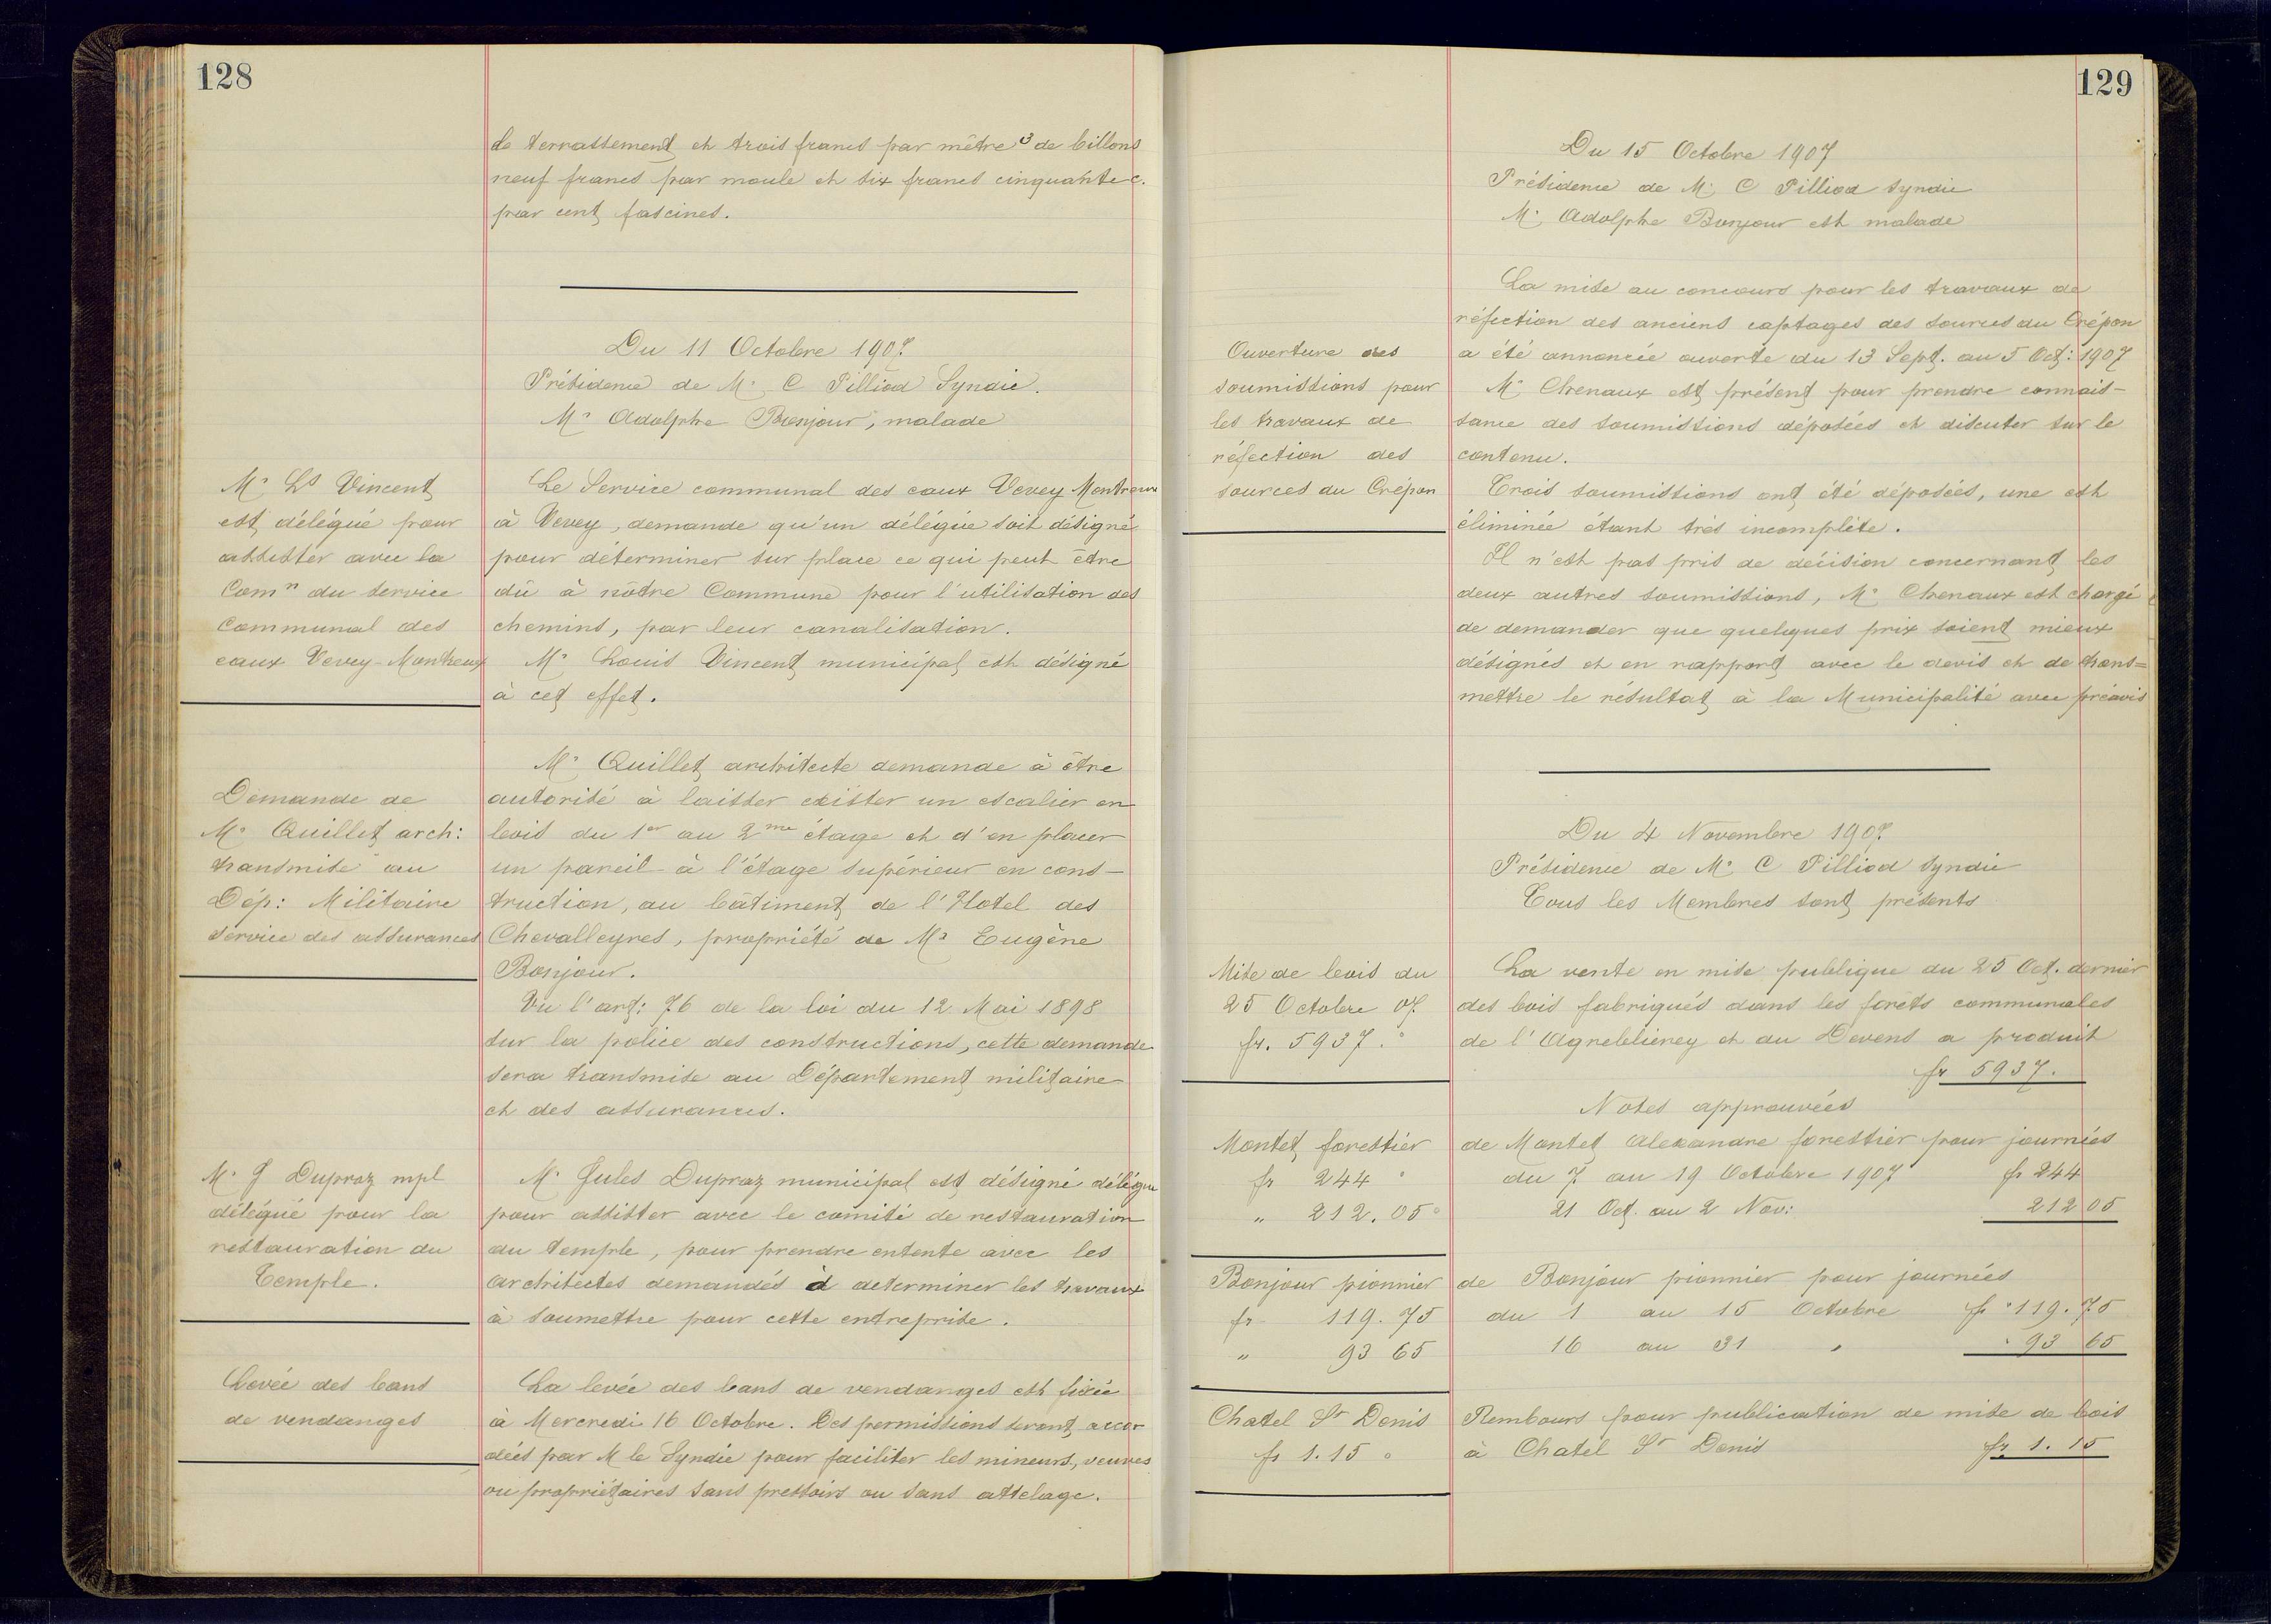 128
de terrassement et trois francs par mètre 3 de billons
neuf francs par moule et six francs cinquante c.
par cent fascines.
Du 11 Octobre 1907.
Présidence de Mr C Pilliod Syndic.
Mr Adolphe Bonjour, malade
Mr Ls Vincent
est délégué pour
assister avec la
Comn du service
communal des
eaux Vevey-Montreux
Le Service communal des eaux Vevey Montreux
à Vevey, demande qu'un délégué soit désigné
pour déterminer sur place ce qui peut être
dû à nôtre Commune pour l'utilisation des
chemins, par leur canalisation.
Mr Louis Vincent municipal est désigné
à cet effet.
Demande de
Mr Quillet arch:
transmise au
Dép: Militaire
service des assurances
Mr Quillet architecte demande à être
autorisé à laisser exister un escalier en
bois du 1er au 2me étage et d'en placer
un pareil à l'étage supérieur en cons-
truction, au bâtiment de l'Hotel des
Chevalleyres, propriété de Mr Eugène
Bonjour.
Vu l'art: 76 de la loi du 12 Mai 1898
sur la police des constructions, cette demande
sera transmise au Département militaire
et des assurances.
Mr J Dupraz mpl
délégué pour la
restauration du
Temple.
Mr Jules Dupraz municipal est désigné délégué
pour assister avec le comité de restauration
du temple, pour prendre entente avec les
architectes demandés à determiner les travaux
à soumettre pour cette entreprise.
Levée des bans
de vendanges
La levée des bans de vendanges est fixée
à Mercredi 16 Octobre. Des permissions seront accor
dées par M le Syndic pour faciliter les mineurs, veuves
ou propriétaires sans pressoirs ou sans attelage.
129
Du 15 Octobre 1907
Présidence de Mr C Pilliod syndic
Mr Adolphe Bonjour est malade
Ouverture des
soumissions pour
les travaux de
réfection des
sources du Crépon
La mise au concours pour les travaux de
réfection des anciens captages des sources du Crépon
a été annoncée ouverte du 13 Sept. au 5 Oct: 1907
Mr Chenaux est présent pour prendre connais-
sance des soumissions déposées et discuter sur le
contenu.
Trois soumissions ont été déposées, une est
éliminée étant très incomplète.
Il n'est pas pris de décision concernant les
deux autres soumissions, Mr Chenaux est chargé
de demander que quelques prix soient mieux
désignés et en rapport avec le devis et de trans=
mettre le résultat à la Municipalité avec préavis
Du 4 Novembre 1907.
Présidence de Mr C Pilliod syndic
Tous les Membres sont présents
Mise de bois du
25 Octobre 07.
fr. 5937. "
La vente en mise publique du 25 Oct. dernier
des bois fabriqués dans les forêts communales
de l'Agreblierey et du Devens a produit
fr 5937.
Notes approuvées
Montet forestier
fr 244 "
" 212.05 "
de Montet Alexandre forestier pour journées
du 7 au 19 Octobre 1907 fr 244
21 Oct. au 2 Nov: 212 05
Bonjour pionnier
fr 119.75
" 93 65
de Bonjour pionnier pour journées
du 1 au 15 Octobre fr 119.75
16 au 31 " " 93 65
Chatel St Denis
fr 1.15 "
Rembours pour publication de mise de bois
à Chatel St Denis fr. 1.15